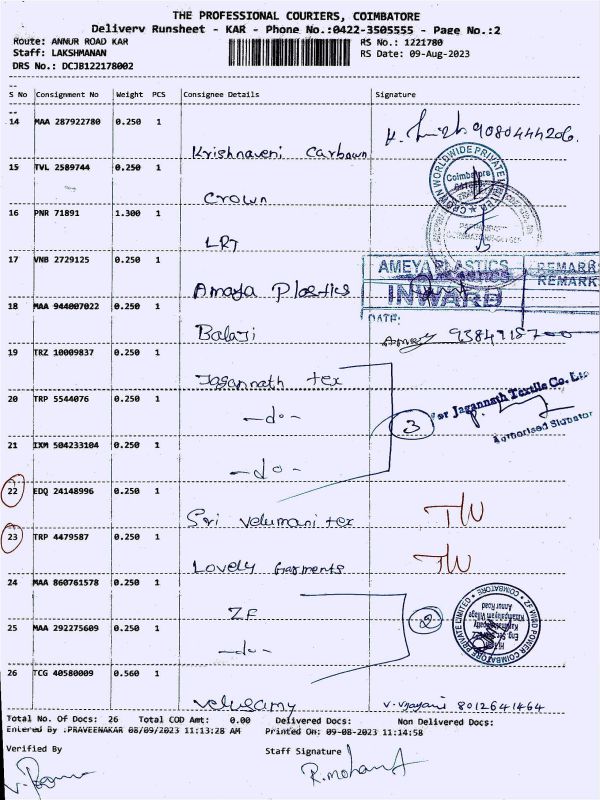 THE PROFESSIONAL COURIERS, COIMBATORE
Delivery Runsheet - KAR - Phone No.:0422-3505555 - Page No.:2
Route: ANNUR ROAD KAR RS No.: 1221780
Staff: LAKSHMANAN RS Date: 09-Aug-2023
DRS No.: DCJB122178002
S No Consignment No Weight PCS Consignee Details Signature
14 MAA 287922780 0.250 1
Krishnaveni Carboun 9080444206.
15 TVL 2589744 0.250 1
Crown
CROWN WORLDWIDE PRIVATE
Coimbatore
16 PNR 71891 1.300 1
LRT
17 VNB 2729125 0.250 1
Amaya Plastics
AMEYA PLASTICS
INWARD
REMARK
REMARK
DATE:
18 MAA 944007022 0.250 1
Balaji
19 TRZ 10009837 0.250 1
Jagannath tex
20 TRP 5544076 0.250 1
-do-
3
For Jagannath Textile Co. Ltd
Authorised Signatory
21 IXM 504233104 0.250 1
-do-
22 EDQ 24148996 0.250 1
Sri Velumani tex
23 TRP 4479587 0.250 1
Lovely Garments
24 MAA 860761578 0.250 1
ZF
2
ZF WIND POWER COIMBATORE PRIVATE LIMITED
Annur Road
25 MAA 292275609 0.250 1
-do-
26 TCG 40580009 0.560 1
Velusamy V. Vijayani 8012641464
Total No. Of Docs: 26 Total COD Amt: 0.00 Delivered Docs: Non Delivered Docs:
Entered By :PRAVEENAKAR 08/09/2023 11:13:28 AM Printed On: 09-08-2023 11:14:58
Verified By Staff Signature
R. Mohan